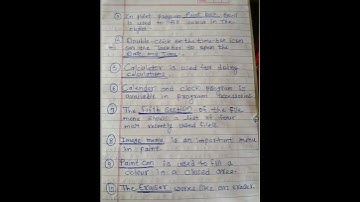 ③ In paint program foot ball tool
is used to fill colour in the
right.
④ Double click on the time bar icon
on the taskbar to open the
Date and Time.
⑤ Calculator is used for doing
calculations
⑥ Calender and clock program is
available in program accessories.
⑦ The Fifth Section of the file
menu shows a list of four
most recently used files.
⑧ Image menu is an important menu
in paint.
⑨ Paint can is used to fill a
colour in a closed area.
⑩ The Eraser works like an eraser.